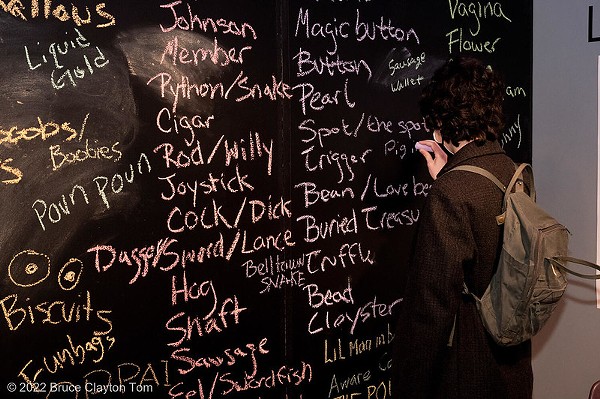 allows
Liquid
Gold
Boobies
Poun poun
Biscuits
Funbags
Johnson
Member
Python/Snake
Cigar
Rod/Willy
Joystick
Cock/Dick
Dagger/Sword/Lance
Belltown
SNAKE
Hog
Shaft
Sausage
Eel/Swordfish
Magic button
Button
Pearl
Spot/the spot
Trigger
Bean/Love be
Buried Treasu
Truffle
Bead
Cloyster
Lil Man in b
Aware C
Sausage
wallet
Pig
Vagina
Flower
am
nny
L
© 2022 Bruce Clayton Tom